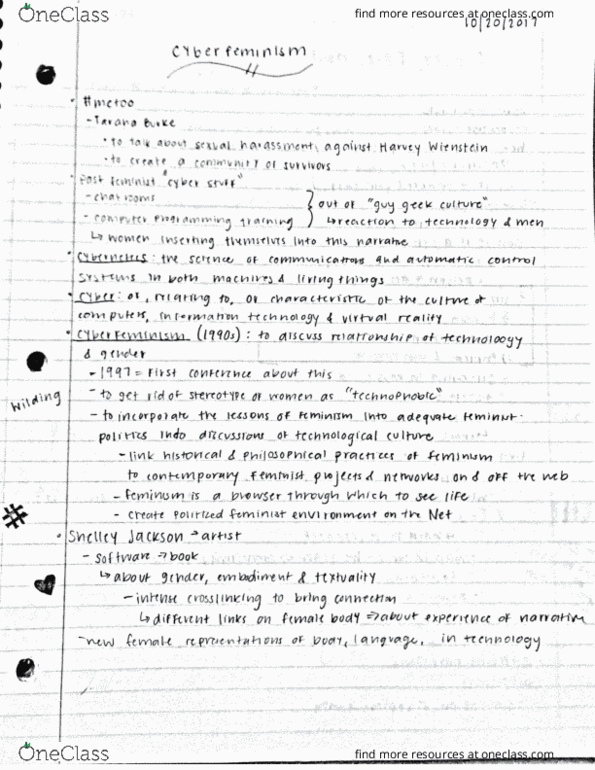 OneClass
find more resources at oneclass.com
10/20/2017
Cyberfeminism
• #metoo
- Tarana Burke
• to talk about sexual harassment, against Harvey Wienstein
• to create a community of survivors
• Post feminist "cyber stuff"
- chatrooms
out of "guy geek culture"
- computer programming training
↳ reaction to technology & men
↳ women inserting themselves into this narrative
• Cybernetics: the science of communications and automatic control
systems in both machines & living things
• Cyber: of, relating to, or characteristic of the culture of
computers, information technology & virtual reality
• Cyberfeminism (1990s): to discuss relationship of technology
& gender
- 1997 = First conference about this
Wilding
- to get rid of stereotype of women as "technophobic"
- to incorporate the lessons of feminism into adequate feminist
politics indo discussions of technological culture
- link historical & philosophical practices of feminism
to contemporary feminist projects & networks on & off the web
- feminism is a browser through which to see life
#
- create politiced feminist environment on the Net
• Shelley Jackson → artist
- software → book
↳ about gender, embodiment & textuality
- intense crosslinking to bring connection
↳ different links on female body ⇒ about experience of narrative
- new female representations of body, language, in technology
OneClass
find more resources at oneclass.com